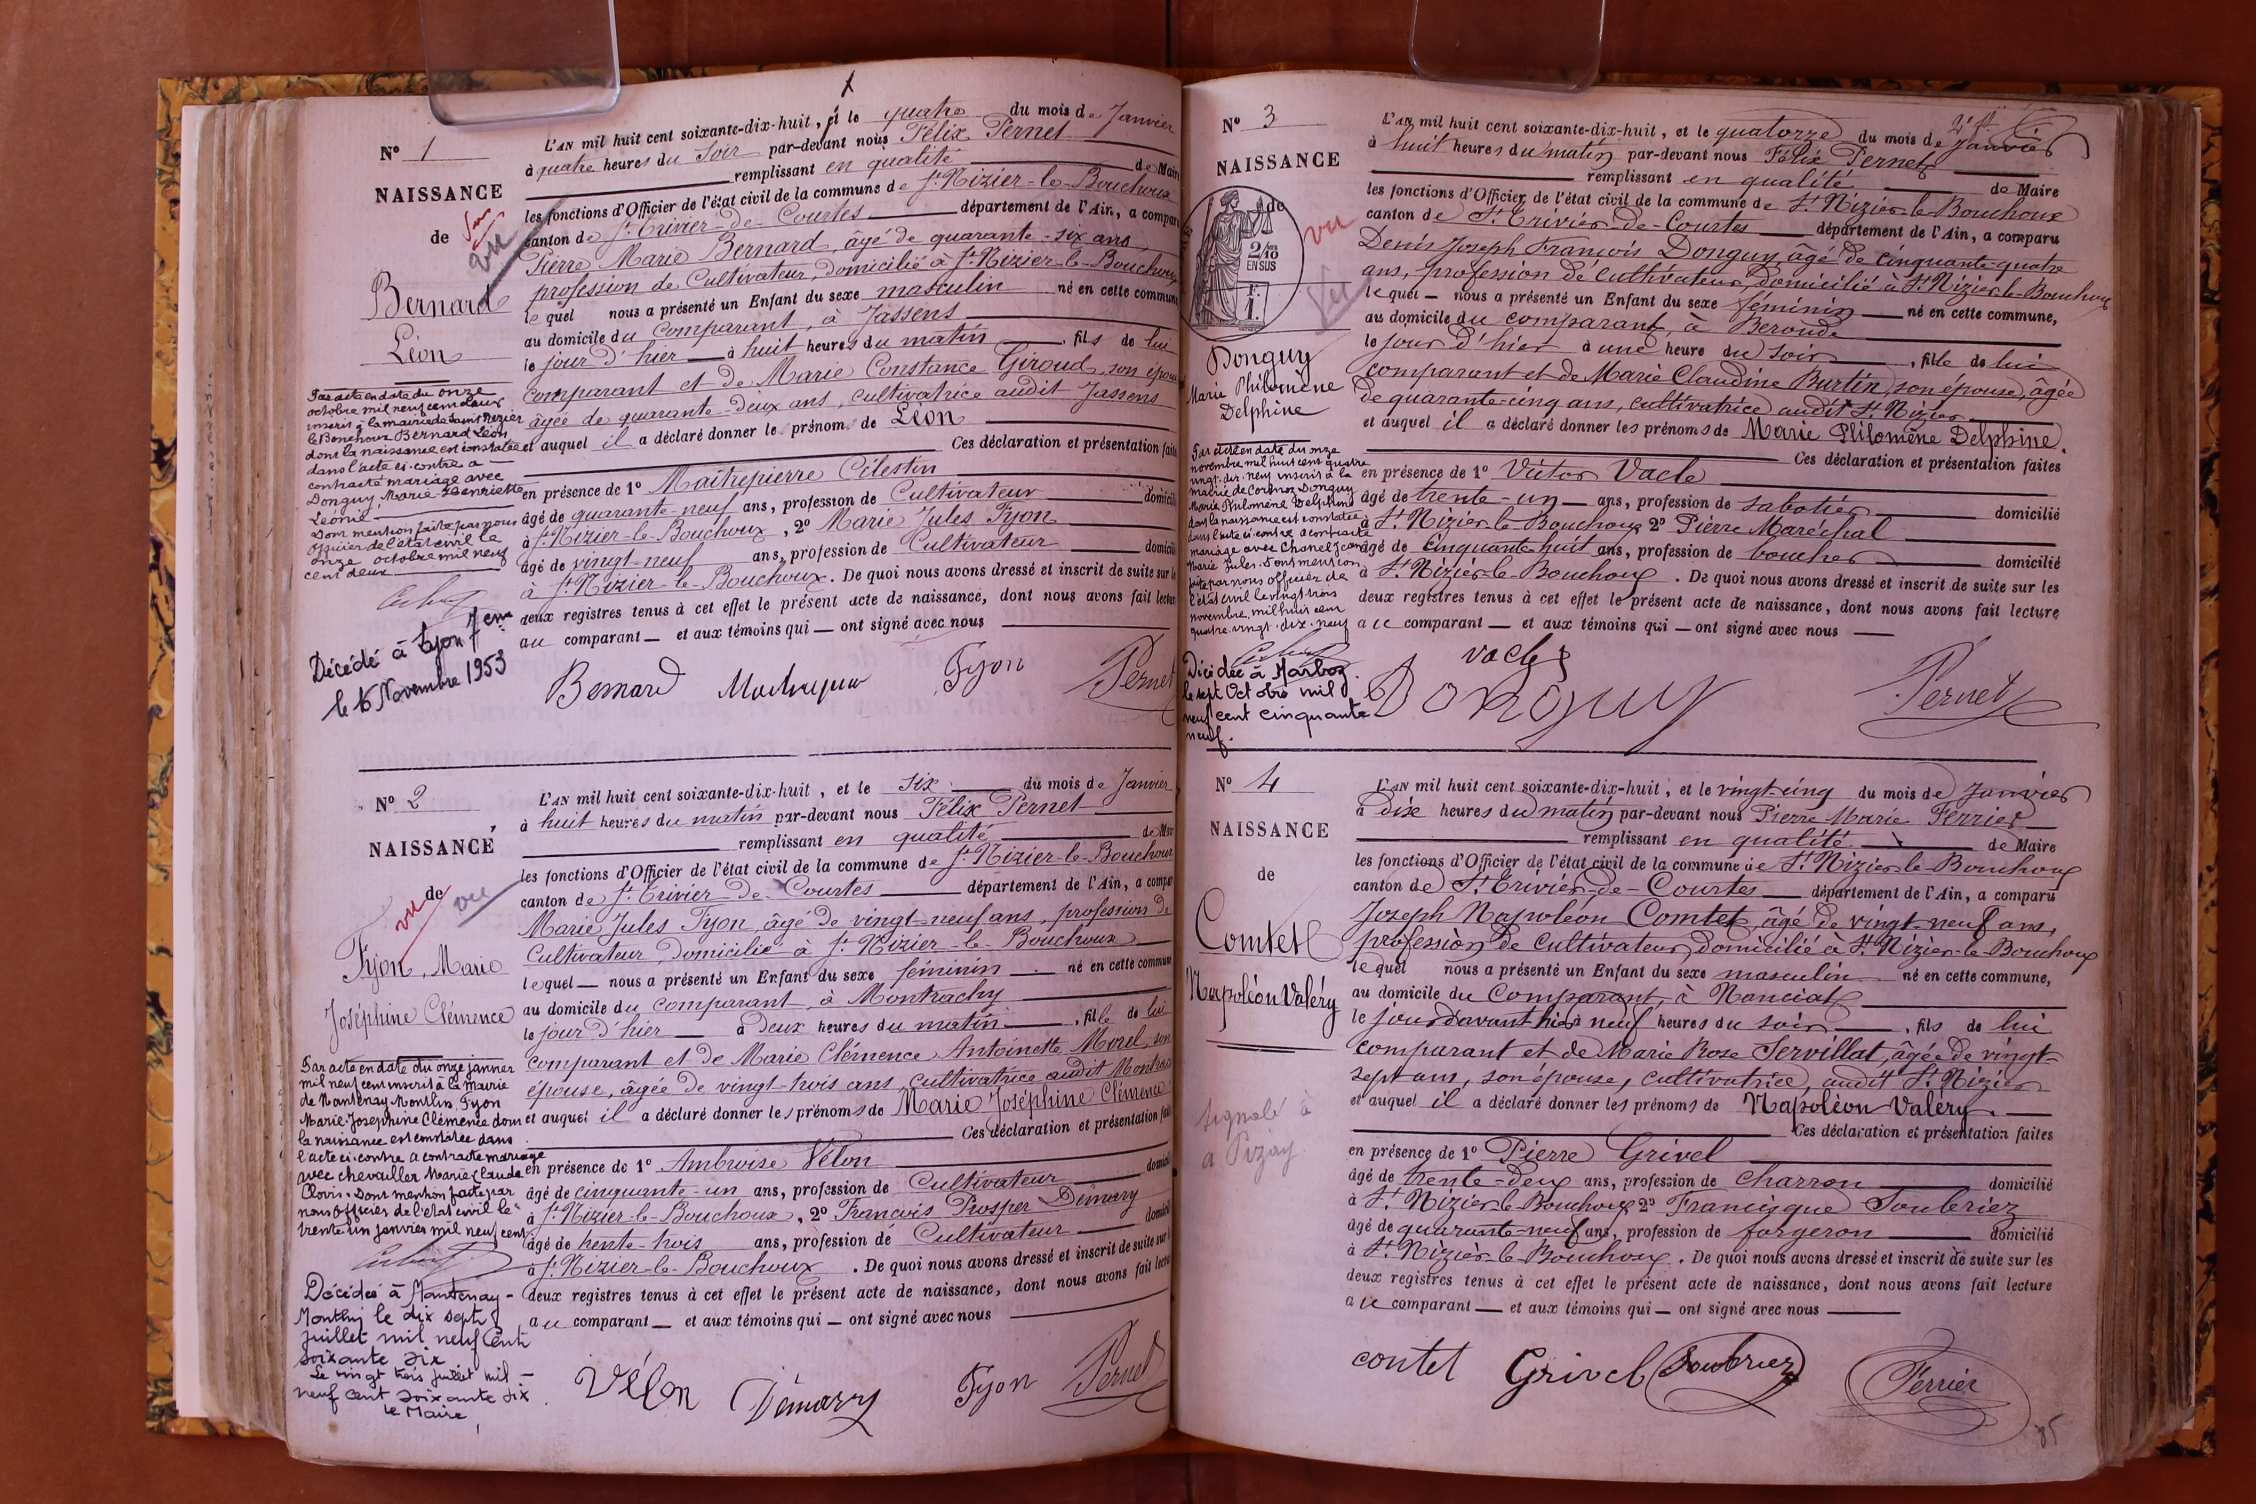 N° 1
NAISSANCE
de
vu
Bernard
Léon
Par acte en date du onze
octobre mil neuf cent deux
inscrit à la mairie de Saint Nizier
le Bouchoux Bernard Léon
dont la naissance est constatée
dans l'acte ci-contre a
contracté mariage avec
Donguy Marie Henriette
Léonie
Dont mention faite par nous
officier de l'état civil le
onze octobre mil neuf
cent deux
Décédé à Lyon 7eme
le 16 Novembre 1953
L'AN mil huit cent soixante-dix-huit, et le quatre du mois de Janvier
à quatre heures du Soir par-devant nous Félix Pernet
remplissant en qualité de Maire
les fonctions d'Officier de l'état civil de la commune de St Nizier-le-Bouchoux
canton de St Trivier-de-Courtes département de l'Ain, a comparu
Pierre Marie Bernard âgé de quarante-six ans
profession de Cultivateur, domicilié à St Nizier-le-Bouchoux
lequel nous a présenté un Enfant du sexe masculin né en cette commune
au domicile du comparant, à Jassens
le jour d'hier à huit heures du matin, fils de lui
comparant et de Marie Constance Giroud, son épouse
âgée de quarante-deux ans, cultivatrice audit Jassens
et auquel il a déclaré donner le prénom de Léon
Ces déclaration et présentation faites
en présence de 1° Maitrepierre Célestin
âgé de quarante-neuf ans, profession de Cultivateur domicilié
à St Nizier-le-Bouchoux, 2° Marie Jules Fyon
âgé de vingt-neuf ans, profession de Cultivateur domicilié
à St Nizier-le-Bouchoux. De quoi nous avons dressé et inscrit de suite sur les
deux registres tenus à cet effet le présent acte de naissance, dont nous avons fait lecture
au comparant et aux témoins qui ont signé avec nous
Bernard Fyon Pernet
N° 2
NAISSANCE
de
vu vu
Fyon, Marie
Joséphine Clémence
Par acte en date du onze janvier
mil neuf cent inscrit à la mairie
de Mantenay Montlin Fyon
Marie-Joséphine Clémence dont
la naissance est constatée dans
l'acte ci-contre a contracté mariage
avec Chevailler Marie Claude
Clovis. Dont mention faite par
nous officier de l'état civil le
trente un janvier mil neuf cent
Décédée à Mantenay-
Montlin le dix sept
juillet mil neuf cent
soixante dix
Le vingt trois juillet mil
neuf cent soixante dix
le Maire
L'AN mil huit cent soixante-dix-huit, et le six du mois de Janvier
à huit heures du matin par-devant nous Félix Pernet
remplissant en qualité de Maire
les fonctions d'Officier de l'état civil de la commune de St Nizier-le-Bouchoux
canton de St Trivier-de-Courtes département de l'Ain, a comparu
Marie Jules Fyon âgé de vingt-neuf ans, profession de
Cultivateur, domicilié à St Nizier-le-Bouchoux
lequel nous a présenté un Enfant du sexe féminin né en cette commune
au domicile du comparant à Montrachy
le jour d'hier à deux heures du matin, fille de lui
comparant et de Marie Clémence Antoinette Morel, son
épouse, âgée de vingt-trois ans, cultivatrice audit
et auquel il a déclaré donner les prénoms de Marie Joséphine Clémence
Ces déclaration et présentation faites
en présence de 1° Ambroise Vélon
âgé de cinquante-un ans, profession de Cultivateur domicilié
à St Nizier-le-Bouchoux, 2° François Prosper Démary
âgé de trente-trois ans, profession de Cultivateur domicilié
à St Nizier-le-Bouchoux. De quoi nous avons dressé et inscrit de suite sur les
deux registres tenus à cet effet le présent acte de naissance, dont nous avons fait lecture
au comparant et aux témoins qui ont signé avec nous
Vélon Démary Fyon Pernet
N° 3
NAISSANCE
de
2/10
EN SUS
vu
Donguy
Marie Philomène
Delphine
Par acte en date du onze
novembre mil huit cent quatre
vingt-dix-neuf inscrit à la
mairie de Cormoz Donguy
Marie Philomène Delphine
dont la naissance est constatée
dans l'acte ci-contre a contracté
mariage avec Chanel Jean
Marie Jules. Dont mention
faite par nous officier de
l'état civil le vingt trois
novembre mil huit cent
quatre-vingt-dix-neuf
Décédée à Marboz
le sept Octobre mil
neuf cent cinquante
neuf.
L'AN mil huit cent soixante-dix-huit, et le quatorze du mois de Janvier
à huit heures du matin par-devant nous Félix Pernet
remplissant en qualité de Maire
les fonctions d'Officier de l'état civil de la commune de St Nizier-le-Bouchoux
canton de St Trivier-de-Courtes département de l'Ain, a comparu
Denis Joseph François Donguy âgé de cinquante-quatre
ans, profession de cultivateur, domicilié à St Nizier-le-Bouchoux
lequel nous a présenté un Enfant du sexe féminin né en cette commune,
au domicile du comparant, à Beroude
le jour d'hier à une heure du soir, fille de lui
comparant et de Marie Claudine Burtin, son épouse, âgée
de quarante-cinq ans, cultivatrice audit St Nizier
et auquel il a déclaré donner les prénoms de Marie Philomène Delphine.
Ces déclaration et présentation faites
en présence de 1° Victor Vacle
âgé de trente-un ans, profession de sabotier domicilié
à St Nizier-le-Bouchoux 2° Pierre Maréchal
âgé de cinquante-huit ans, profession de boucher domicilié
à St Nizier-le-Bouchoux. De quoi nous avons dressé et inscrit de suite sur les
deux registres tenus à cet effet le présent acte de naissance, dont nous avons fait lecture
au comparant et aux témoins qui ont signé avec nous
Vacle
Donguy Pernet
N° 4
NAISSANCE
de
Comtet
Napoléon Valéry
signalé à
a Pizay
L'AN mil huit cent soixante-dix-huit, et le vingt-cinq du mois de Janvier
à dix heures du matin par-devant nous Pierre Marie Ferrier
remplissant en qualité de Maire
les fonctions d'Officier de l'état civil de la commune de St Nizier-le-Bouchoux
canton de St Trivier-de-Courtes département de l'Ain, a comparu
Joseph Napoléon Comtet, âgé de vingt-neuf ans,
profession de cultivateur, domicilié à St Nizier-le-Bouchoux
lequel nous a présenté un Enfant du sexe masculin né en cette commune,
au domicile du Comparant, à Nanciat
le jour d'avant hier à neuf heures du soir, fils de lui
comparant et de Marie Rose Servillat, âgée de vingt-
sept ans, son épouse, cultivatrice, audit St Nizier
et auquel il a déclaré donner les prénoms de Napoléon Valéry.
Ces déclaration et présentation faites
en présence de 1° Pierre Grivel
âgé de trente-deux ans, profession de charron domicilié
à St Nizier-le-Bouchoux 2° Francisque Soubriez
âgé de quarante-neuf ans, profession de forgeron domicilié
à St Nizier-le-Bouchoux. De quoi nous avons dressé et inscrit de suite sur les
deux registres tenus à cet effet le présent acte de naissance, dont nous avons fait lecture
au comparant et aux témoins qui ont signé avec nous
contet Grivel Soubriez Ferrier